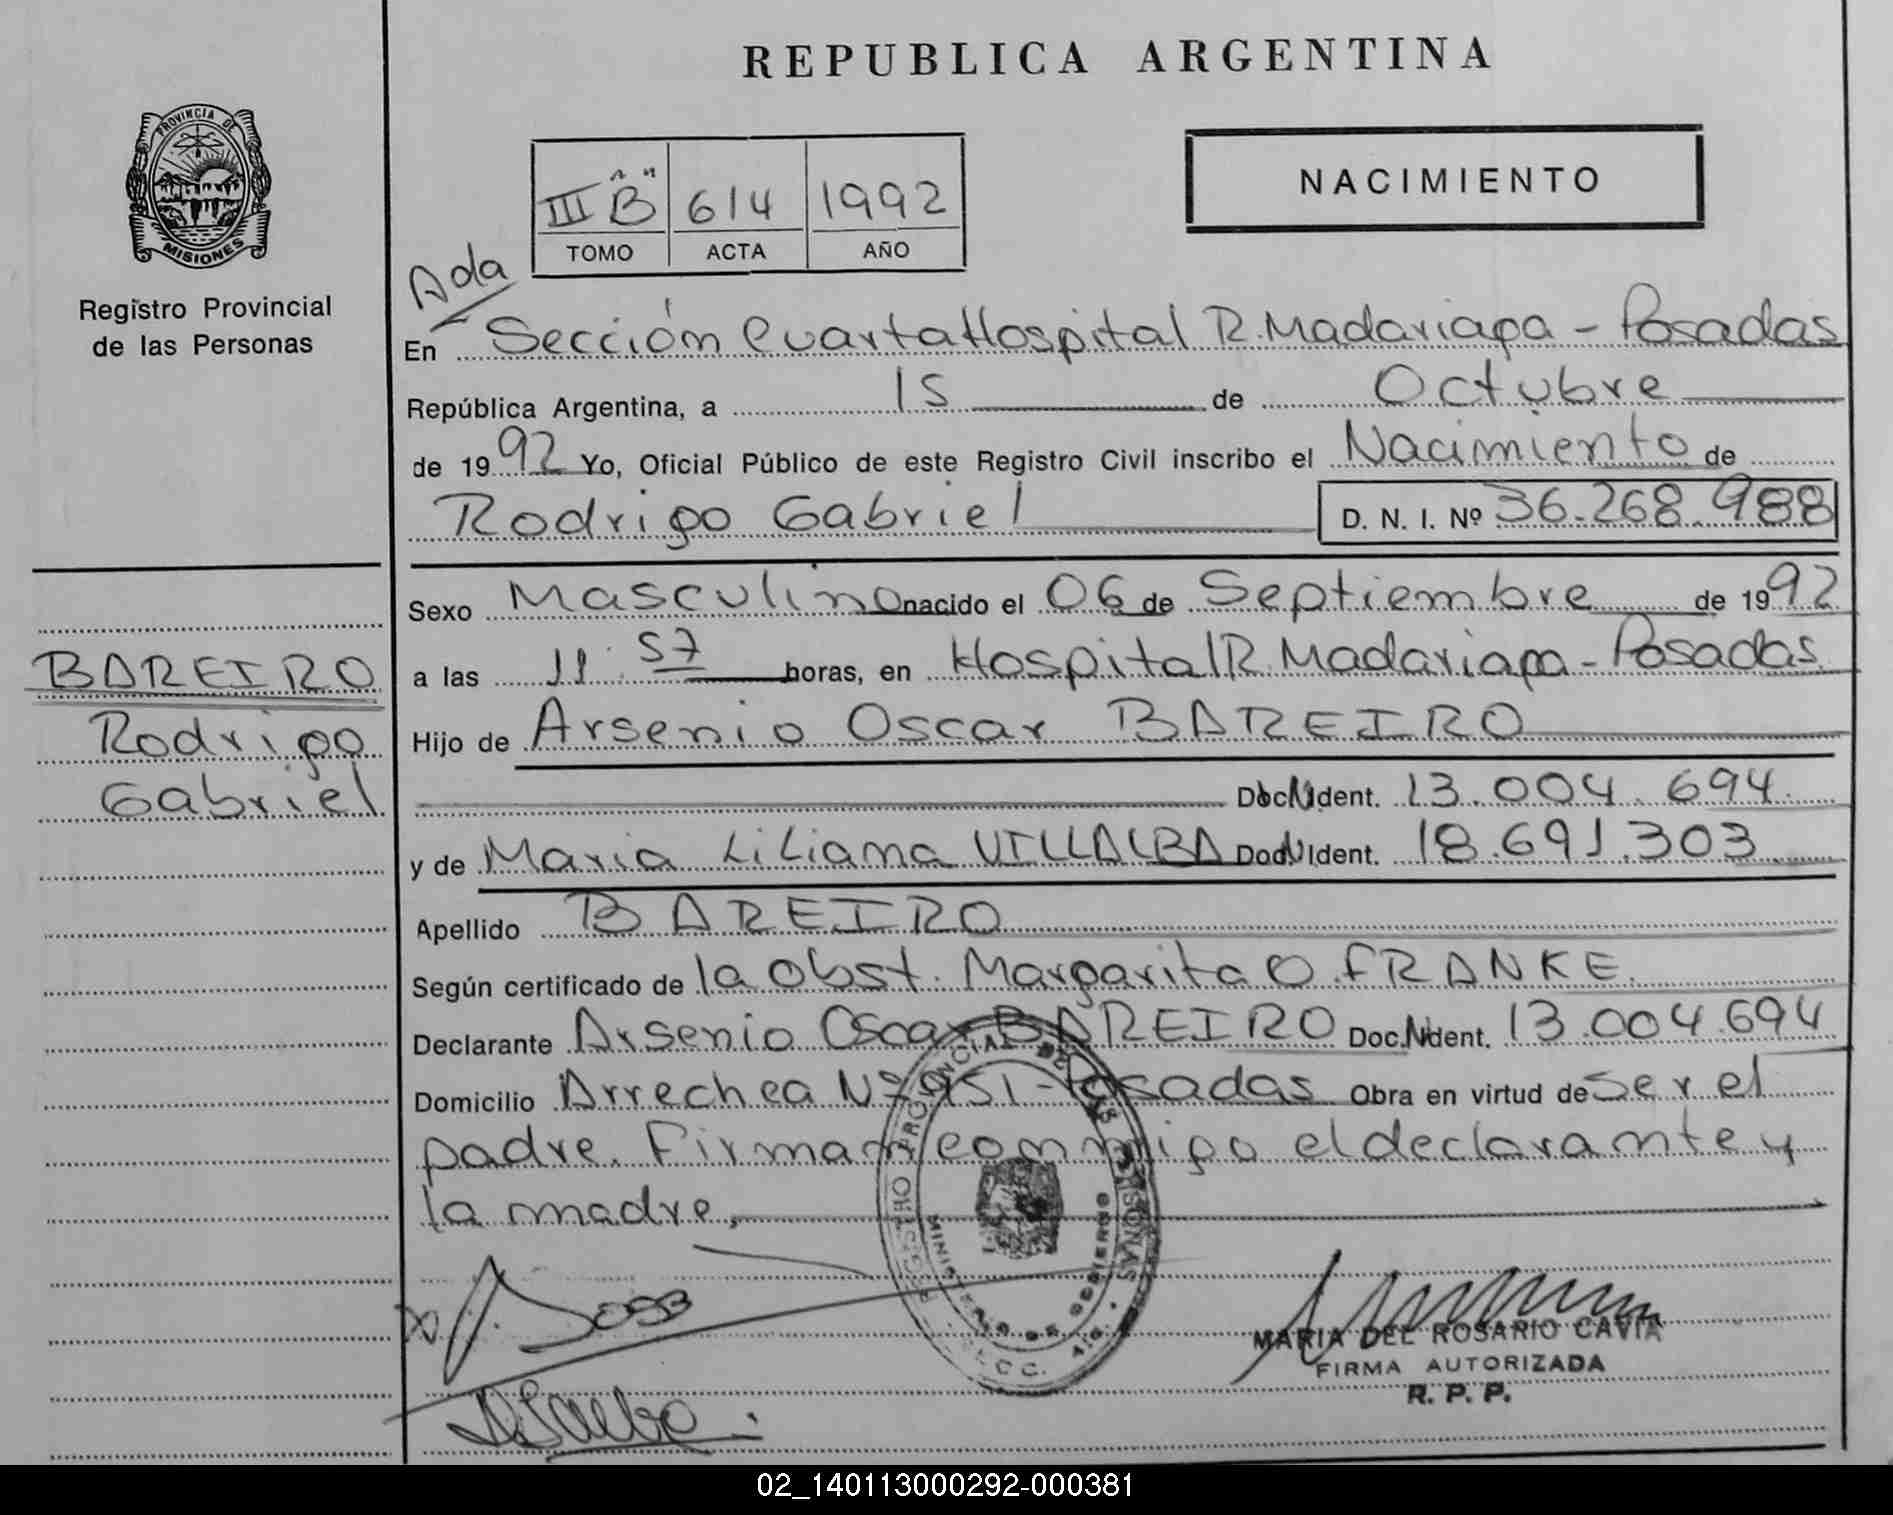 REPUBLICA ARGENTINA
PROVINCIA DE
MISIONES
Registro Provincial
de las Personas
III "B" 614 1992
TOMO ACTA AÑO
NACIMIENTO
Ada
En Sección Cuarta Hospital R. Madariaga - Posadas
República Argentina, a 15 de Octubre
de 1992 Yo, Oficial Público de este Registro Civil inscribo el Nacimiento de
Rodrigo Gabriel D. N. I. Nº 36.268.988
Sexo Masculino nacido el 06 de Septiembre de 1992
a las 11:57 horas, en Hospital R. Madariaga - Posadas
Hijo de Arsenio Oscar BAREIRO
Doc. Ident. 13.004.694
y de Maria Liliana VILLALBA Doc. Ident. 18.691.303
Apellido BAREIRO
Según certificado de la Obst. Margarita O. FRANKE.
Declarante Arsenio Oscar BAREIRO Doc. Ident. 13.004.694
Domicilio Arrechea Nº 951 - Posadas Obra en virtud de ser el
padre. Firman conmigo el declarante y
la madre,
BAREIRO
Rodrigo
Gabriel
PROVINCIAL DE LAS PERSONAS
MINISTERIO DE GOBIERNO
MARIA DEL ROSARIO CAVIA
FIRMA AUTORIZADA
R. P. P.
02_140113000292-000381